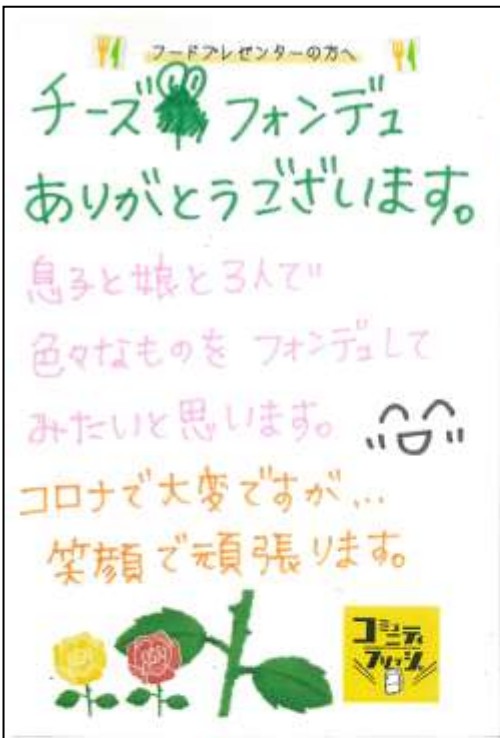 フードプレゼンターの方へ
チーズフォンデュ
ありがとうございます。
息子と娘と3人で
色々なものを フォンデュして
みたいと思います。
コロナで大変ですが...
笑顔で頑張ります。
コミュニティ
フリッジ